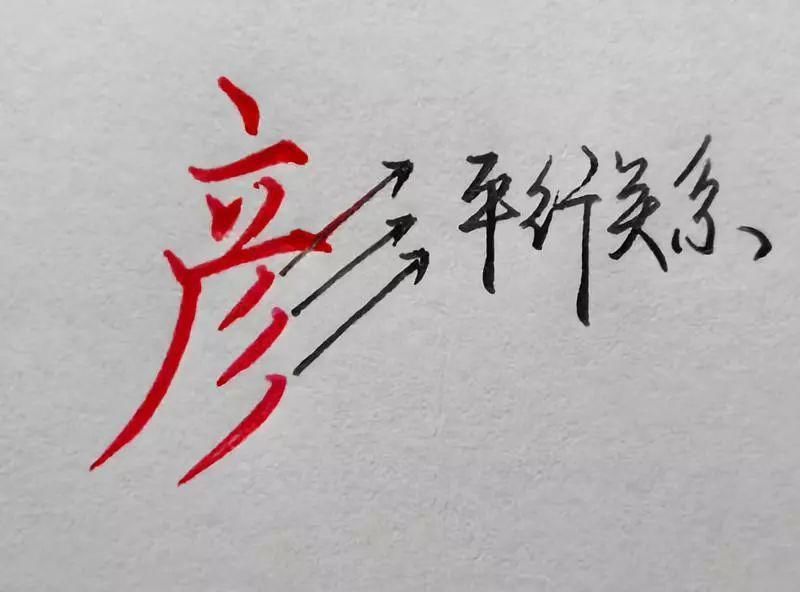 彦 平行关系